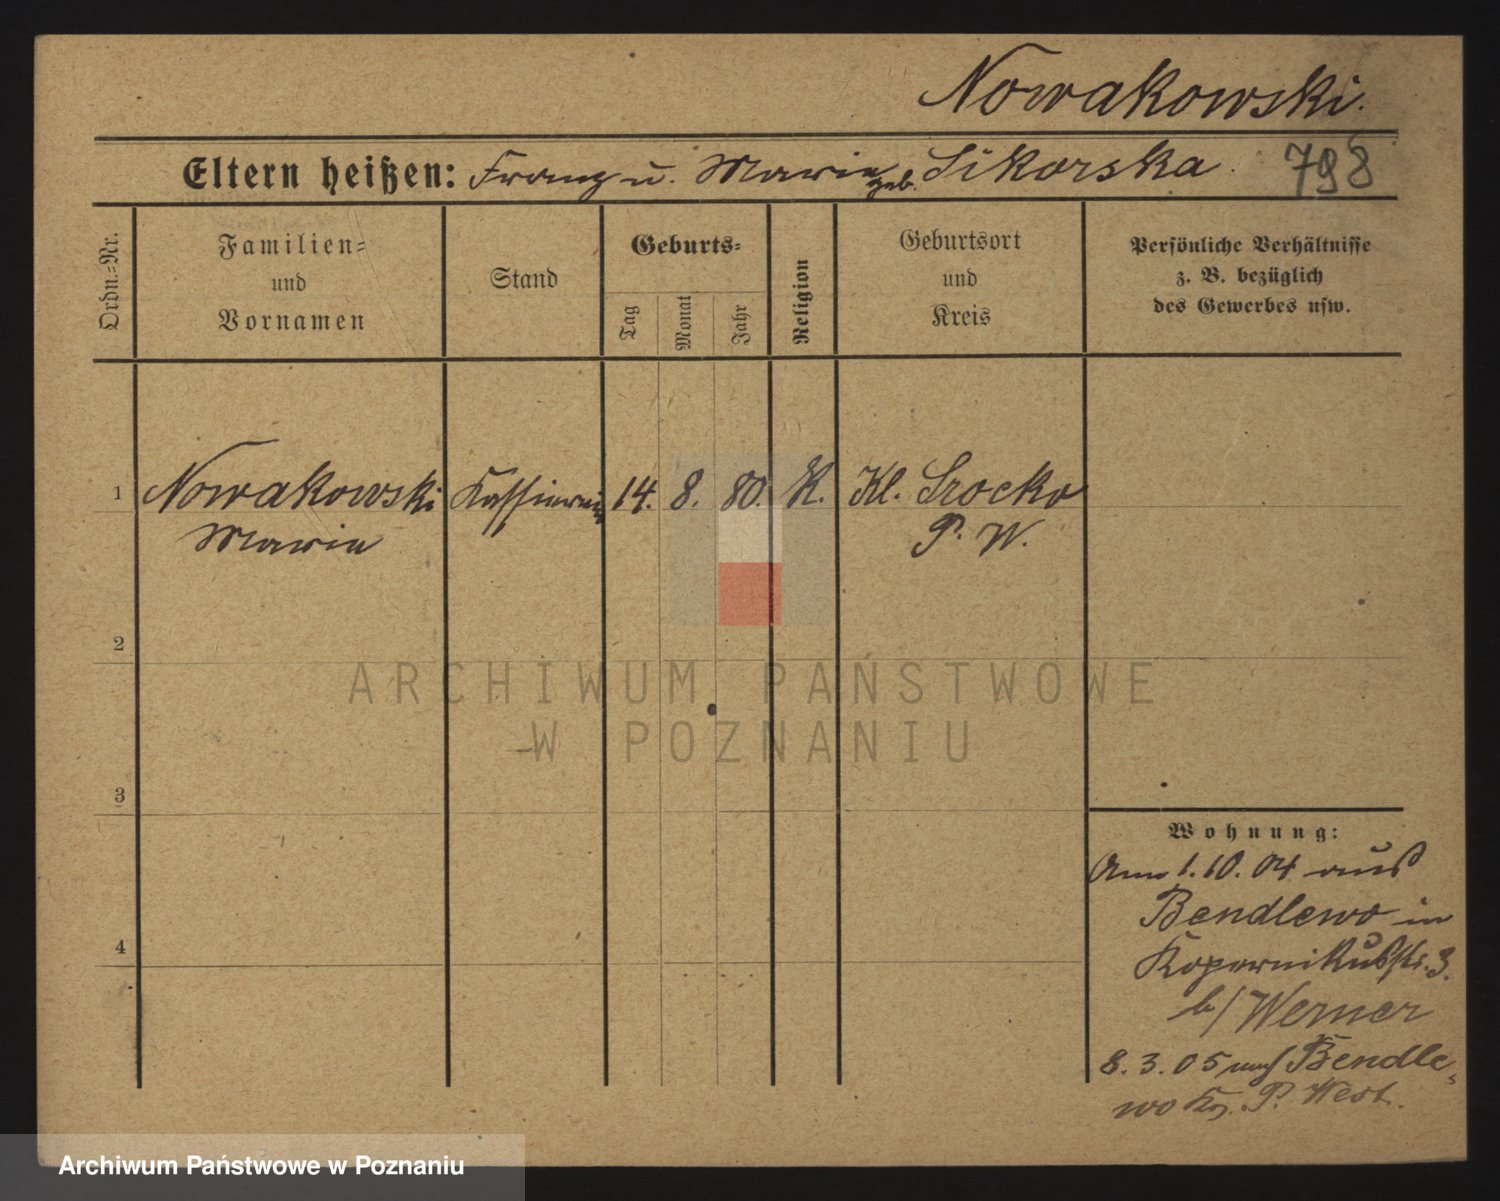 Nowakowski.
Eltern heißen: Franz u. Marie geb. Sikorska. 798
Ordn.-Nr.
Familien-
und
Vornamen
Stand
Geburts-
Tag
Monat
Jahr
Religion
Geburtsort
und
Kreis
Persönliche Verhältnisse
z. B. bezüglich
des Gewerbes usw.
1 Nowakowski Kassiererin 14. 8. 80. K. Kl. Srocko
Marie P. W.
2
3
4
Wohnung:
Am 1.10.04 aus
Bendlewo in
Kopernikusstr. 3.
b/ Werner
8.3.05 nach Bendle-
wo Krs. P. West.
ARCHIWUM PAŃSTWOWE
W POZNANIU
Archiwum Państwowe w Poznaniu